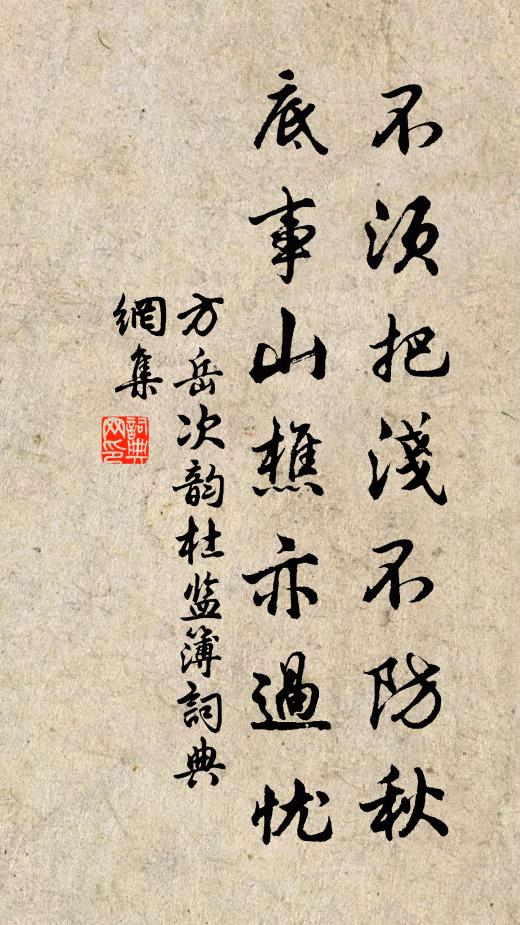 不须把淺不防秋
底事山樵亦過忧
方岳次韵杜监簿詞典
網集
詞典网印